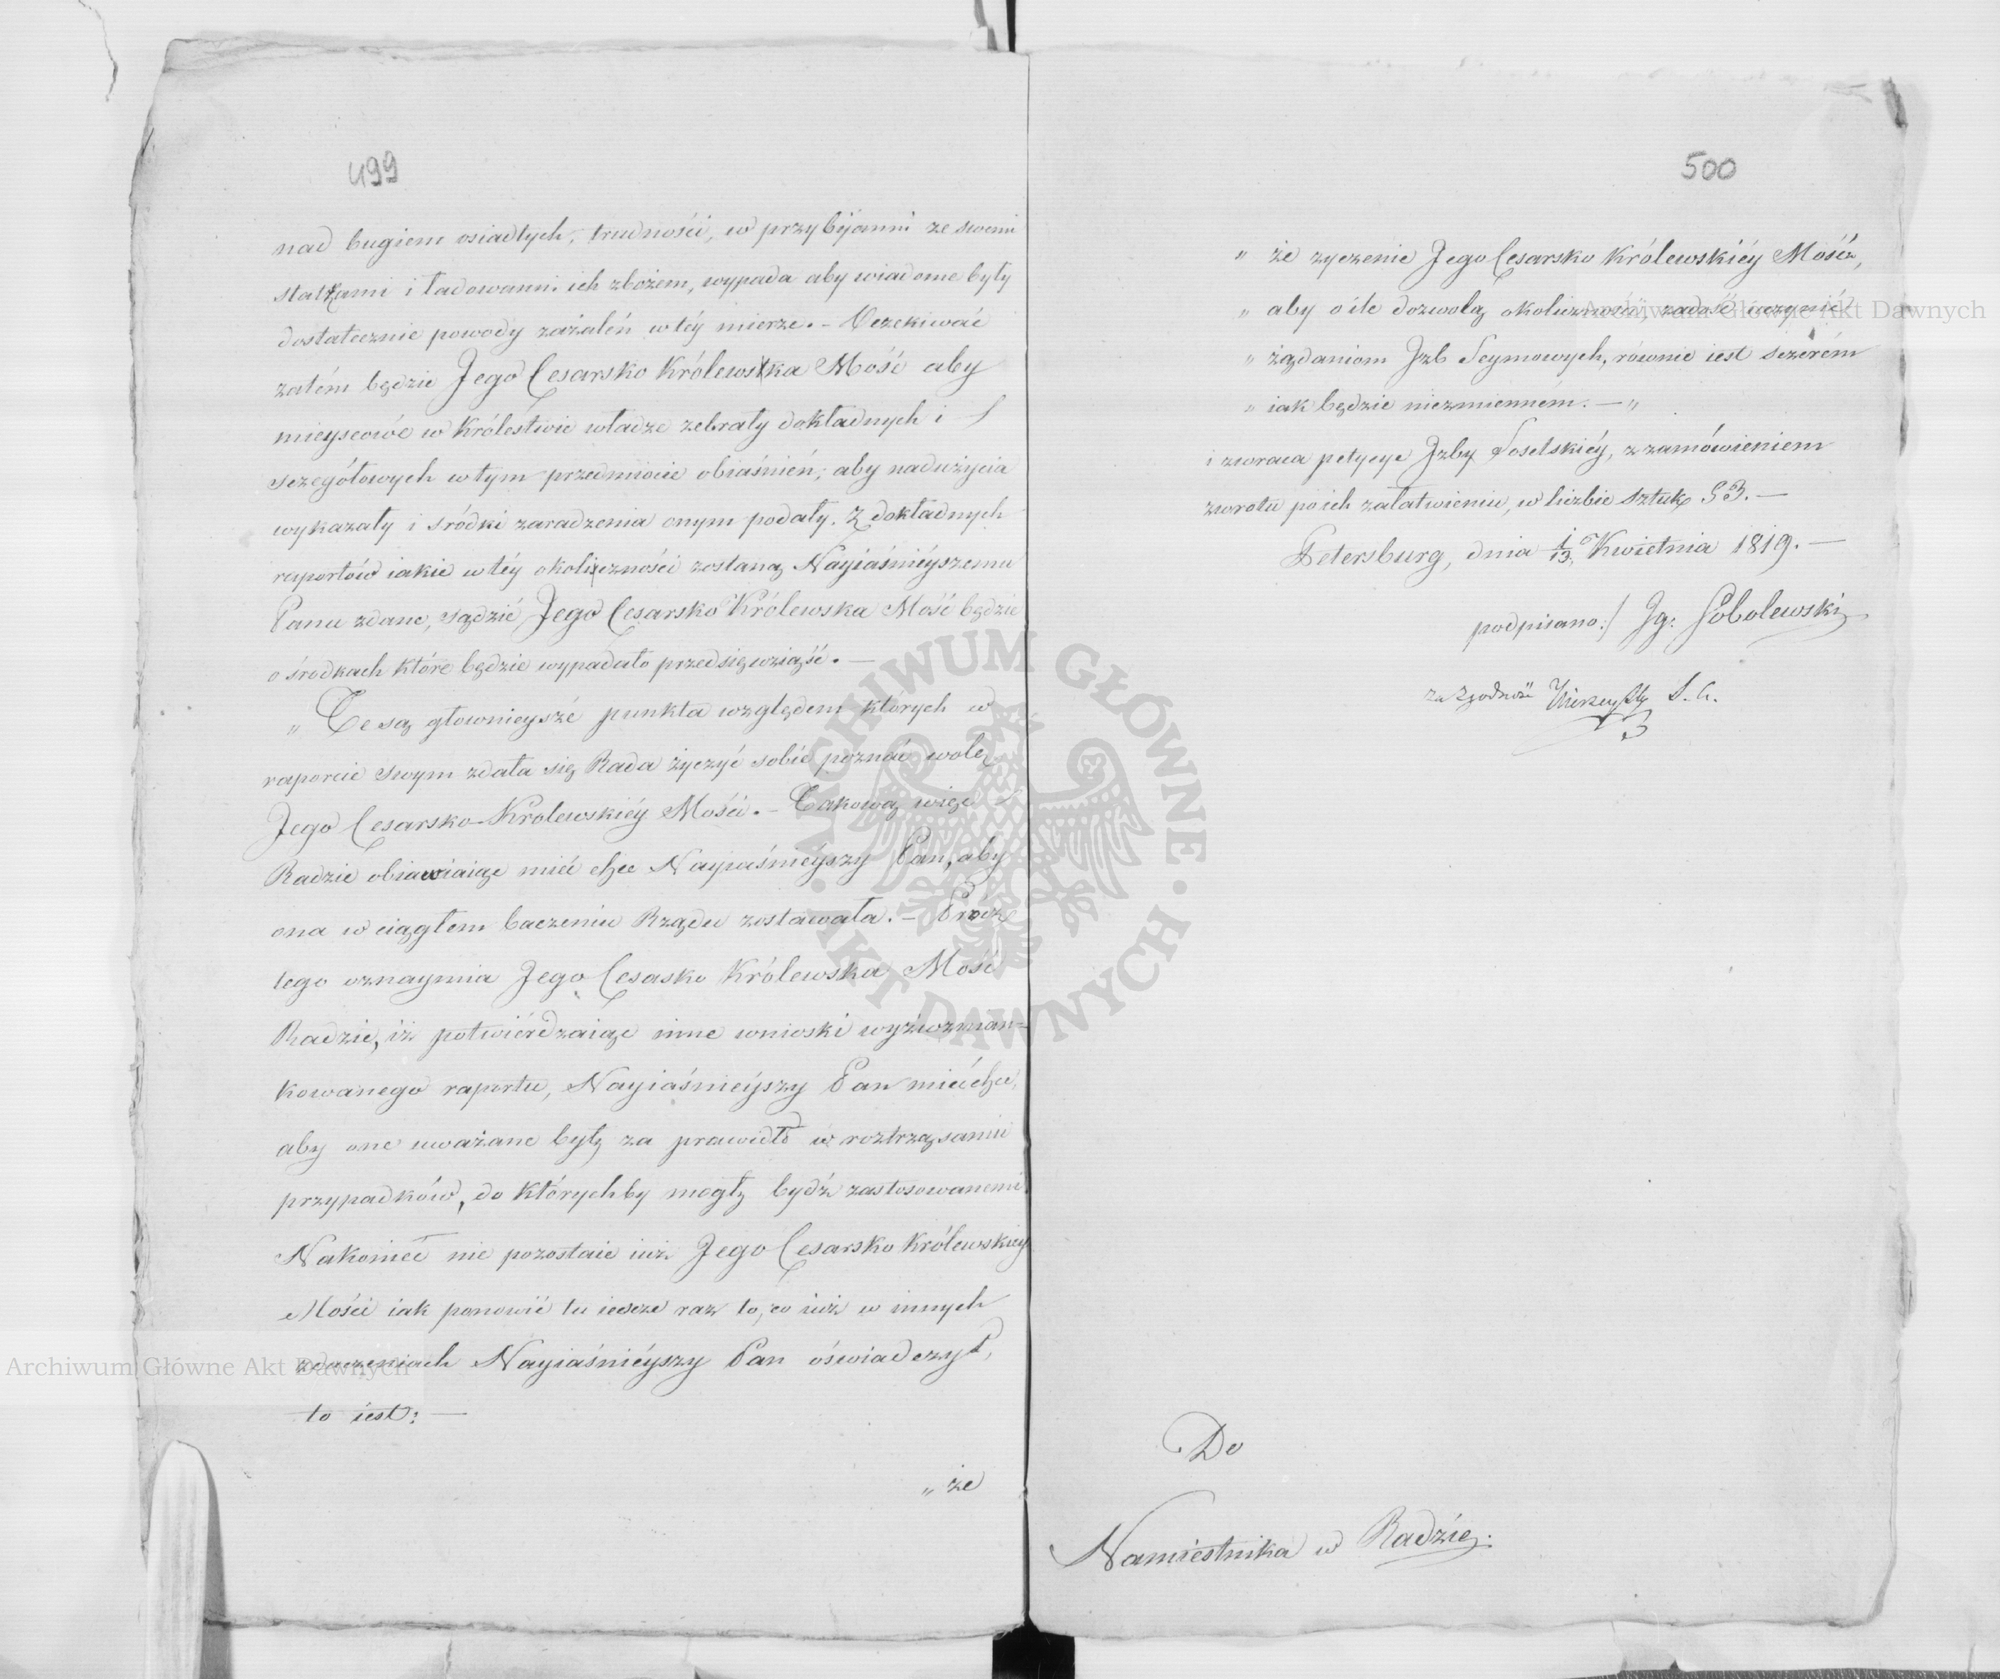 499
nad bugiem osiadłych, trudności, w przybijanni ze swemi
statkami i ładowanni ich zbożem, wypada aby wiadome były
dostatecznie powody zażaleń w téy mierze. – Oczekiwać
zatém będzie Jego Cesarsko Królewska Mość aby
mieyscowe w Królestwie władze zebrały dokładnych i
szczegółowych w tym przedmiocie obiaśnień, aby nadużycia
wykazały i śródki zaradzenia onym podały. Z dokładnych
raportów iakie w téy okoliczności zostaną Nayiaśnieyszemu
Panu zdane, sądzić Jego Cesarsko Królewska Mość będzie
o środkach które będzie wypadało przedsięwziąść. —
„ Te są głownieysze punkta względem których w
raporcie swym zdała się Rada życzyć sobie poznać wolę
Jego Cesarsko-Krolewskiéy Mości. – Takową więc
Radzie obiawiaiąc mieć chce Nayiaśnieyszy Pan, aby
ona w ciągłem baczeniu Rządu zostawała. – Prócz
tego oznaymia Jego Cesasko Królewska Mość
Radzie, iż potwiérdzaiąc inne wnioski wyżwzmian=
kowanego raportu, Nayiaśnieyszy Pan mieć chce,
aby one uważane były za prawidło w roztrząsaniu
przypadków, do którychby mogły bydź zastosowanemi.
Nakoniec nie pozostaie iuż Jego Cesarsko Królewskiey
Mości iak ponowić tu ieszcze raz to, co iuż w innych
zdarzeniach Nayiaśnieyszy Pan oświadczył,
to iest: —
„ że
500
„ że zyczenie Jego Cesarsko Królewskiéy Mości,
„ aby o ile dozwolą okoliczności, zadość uczynić
„ żądaniom Izb Seymowych, równie iest szczerém
„ iak będzie niezmienném. — „
i zwraca petycye Izby Poselskiéy, z zamówieniem
zwrotu po ich załatwieniu, w liczbie sztuk 53. —
Petersburg, dnia 1/13 Kwietnia 1819. —
podpisano:/ Ig: Sobolewski
za zgodność
S. G.
Do
Namiestnika w Radzie.
ARCHIWUM GŁÓWNE · AKT DAWNYCH ·
Archiwum Główne Akt Dawnych
Archiwum Główne Akt Dawnych